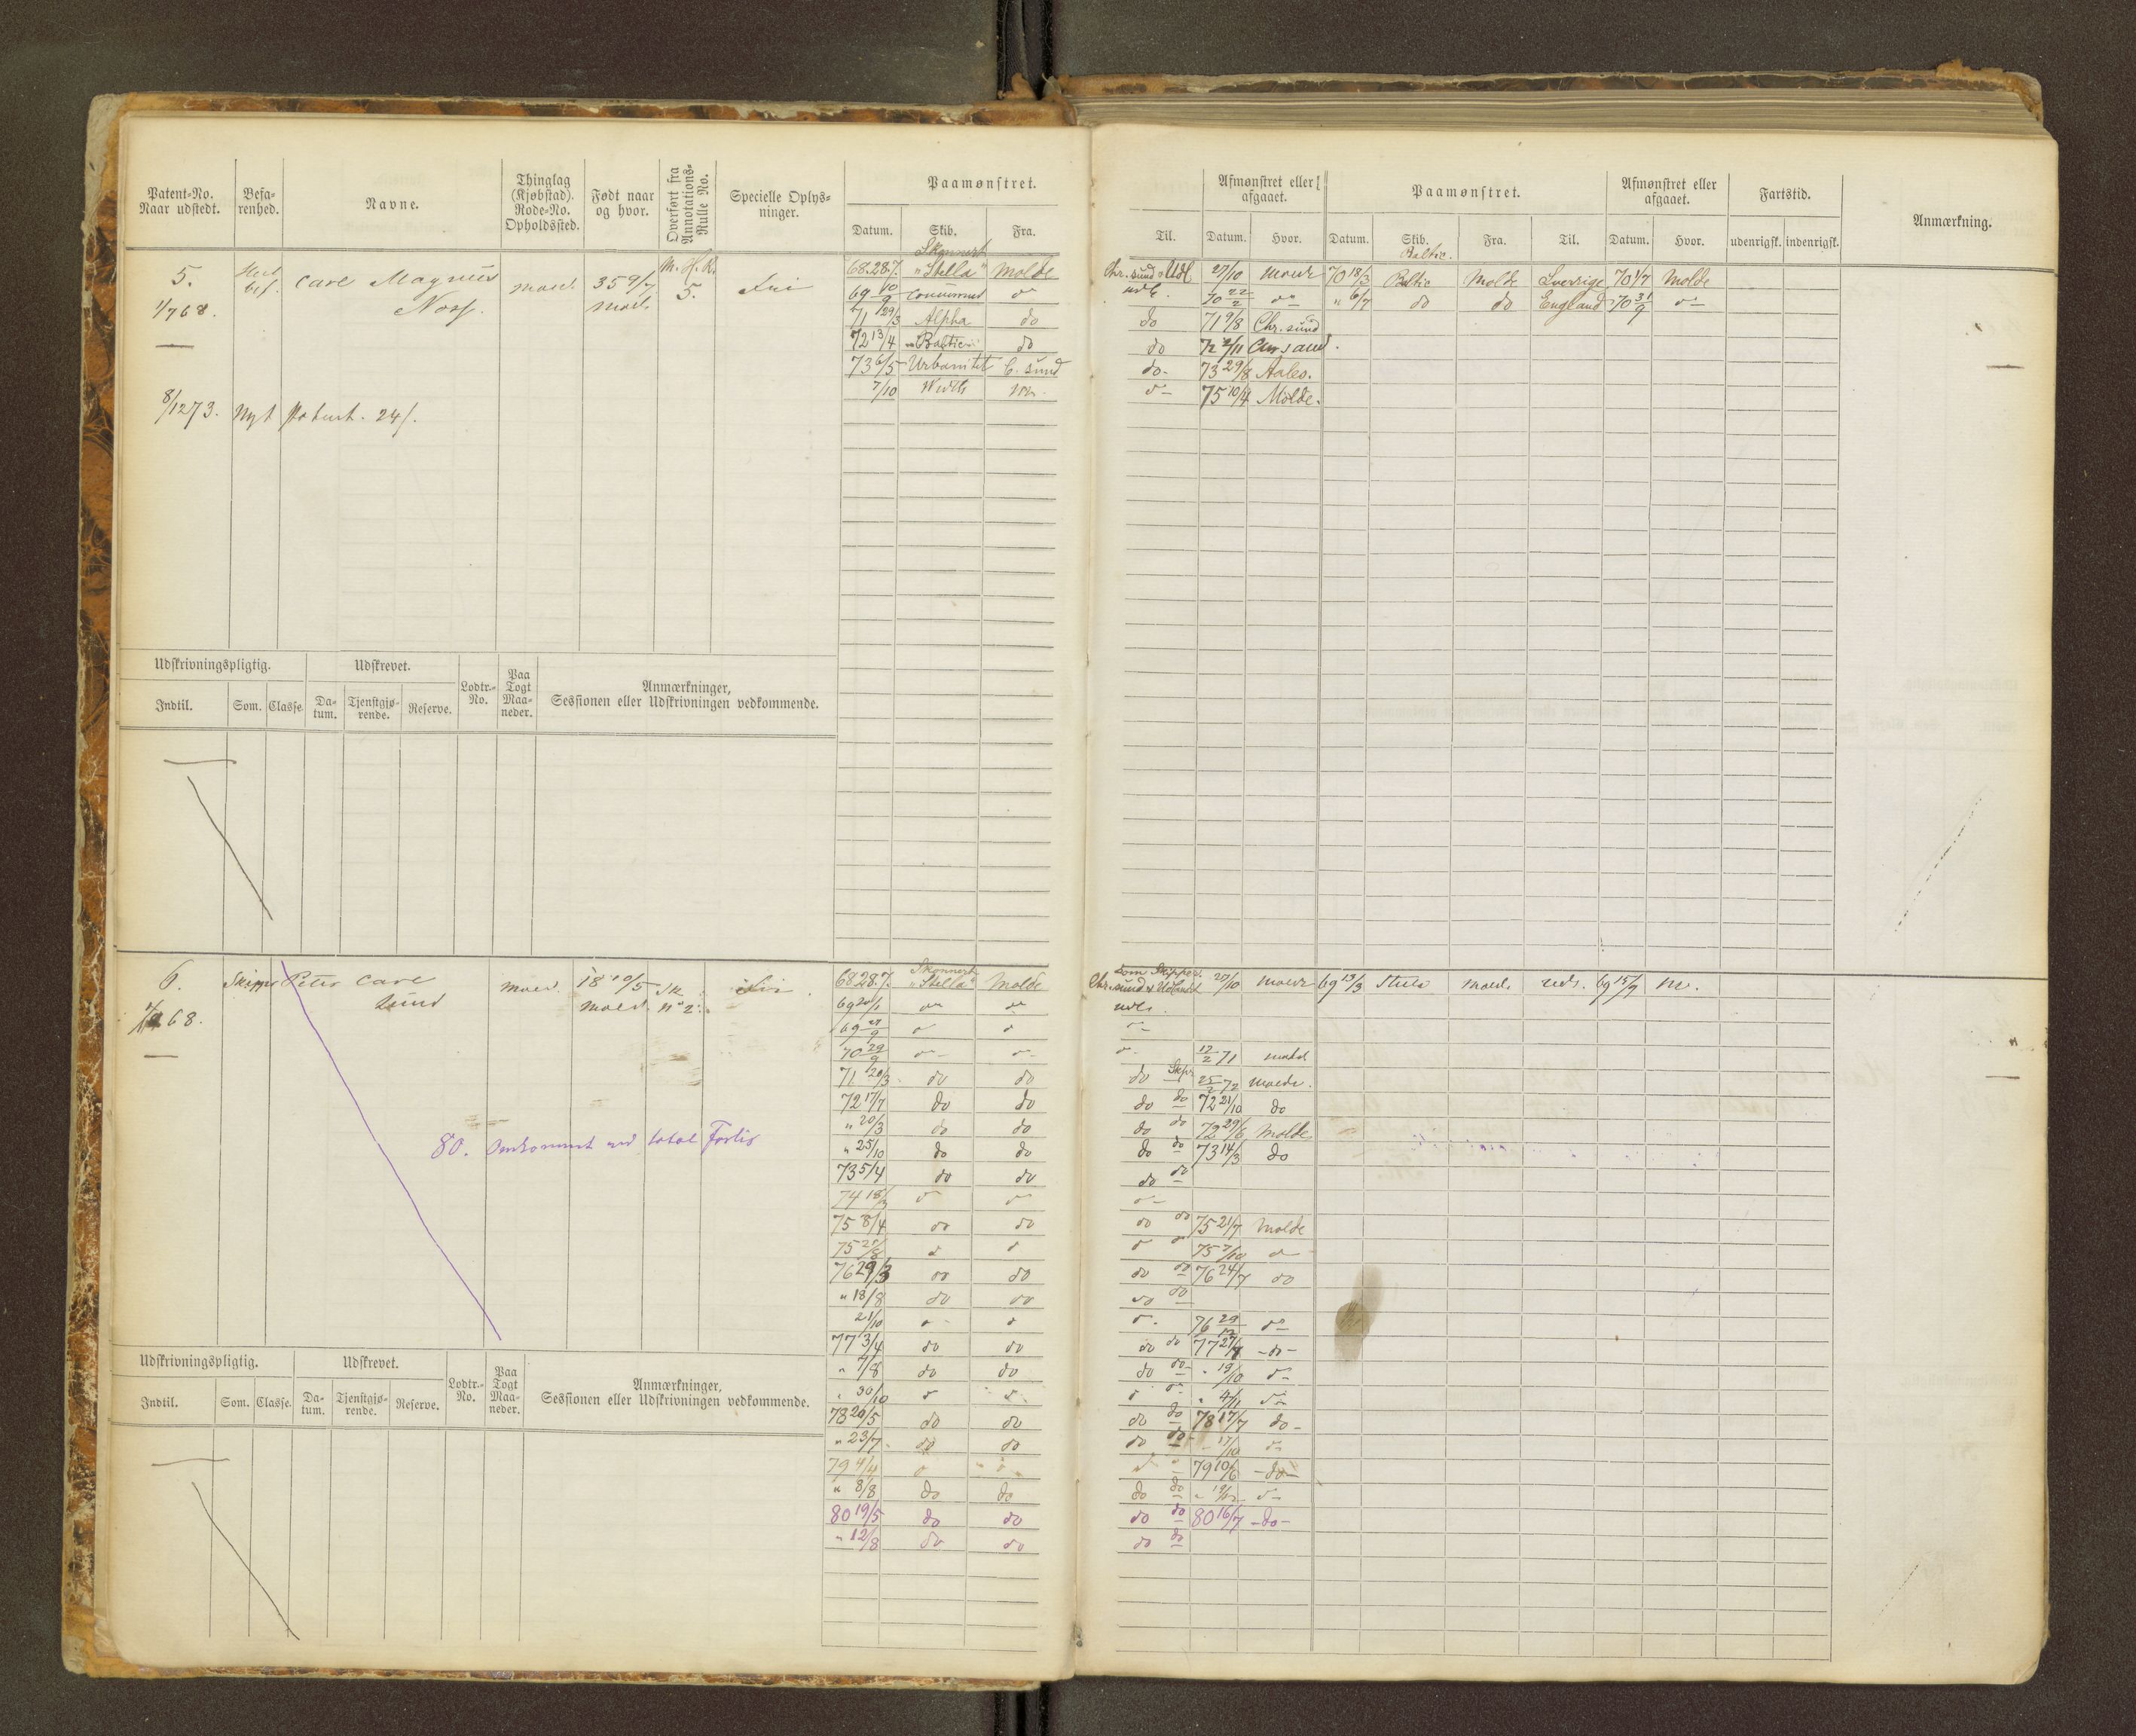 Patent-No. Naar udstedt.
Befa-renhed.
Navne.
Thinglag (Kjøbstad). Rode-No. Opholdssted.
Født naar og hvor.
Overført fra Annotations-Rulle No.
Specielle Oplys-ninger.
Paamønstret.
Datum. Skib. Fra. Til.
Afmønstret eller afgaaet.
Datum. Hvor.
Paamønstret.
Datum. Skib. Fra. Til.
Afmønstret eller afgaaet.
Datum. Hvor.
Fartstid.
udenrigsk. indenrigsk.
Anmærkning.
5. Carl Magnus 35 9/7 M. H. R. Fri
1/7 68. Noss. 5.
8/12 73. Nyt Patent. 24/.
Skonnert
68.28.7. "Stella" Molde Chr.sund & Udl. 27/10 70 18/3 Baltic Molde Sverrige 70 1/7 Molde
69 10/9 do udl. 70 22/2 do " 6/7 do do England 70 31/9 do
71 29/3 Alpha do do 71 9/8 Chr.sund
72 13/4 "Baltic" do do
73 6/5 Urbanitet C.sund do 73 29/8 Aales.
7/10 do 75 10/4 Molde.
Udskrivningspligtig. Udskrevet. Lodtr.-No. Paa Togt Maa-neder. Anmærkninger, Sessionen eller Udskrivningen vedkommende.
Indtil. Som. Classe. Da-tum. Tjenstgjø-rende. Reserve.
6. Skipper Peter Carl 18 10/5 Fri
Lund No 2.
68.
80. Omkommet ved total Forlis
Skonnert som Skipper.
68.28.7. "Stella" Molde Chr.sund & Udlandet 27/10 69 13/3 69 15/9
69 20/1 do do udl.
69 do do do
70 29/9 do do do 17/2 71
71 20/3 do do do Skpr 25/2 72
72 17/7 do do do do 72 21/10 do
" 20/3 do do do do 72 29/6 Molde
" 25/10 do do do do 73 14/3 do
73 5/4 do do do do
74 18/3 do do do
75 8/4 do do do do 75 21/7 Molde
75 do do do do 75 7/10 do
76 29/3 do do do do 76 24/7 do
" 18/8 do do do do
21/10 do do do 76 29/12 do
77 3/4 do do do do 77 27/7 -do-
" 7/8 do do do do " 19/10 do
" 30/10 do do do do " 4/11 do
78 20/5 do do do do 78 17/7 do-
" 23/7 do do do do 17/10 do
79 4/4 do do do do 79 10/6 -do-
" 8/8 do do do do do
80 19/5 do do do do 80 16/7 -do-
" 12/8 do do do do
Udskrivningspligtig. Udskrevet. Lodtr.-No. Paa Togt Maa-neder. Anmærkninger, Sessionen eller Udskrivningen vedkommende.
Indtil. Som. Classe. Da-tum. Tjenstgjø-rende. Reserve.